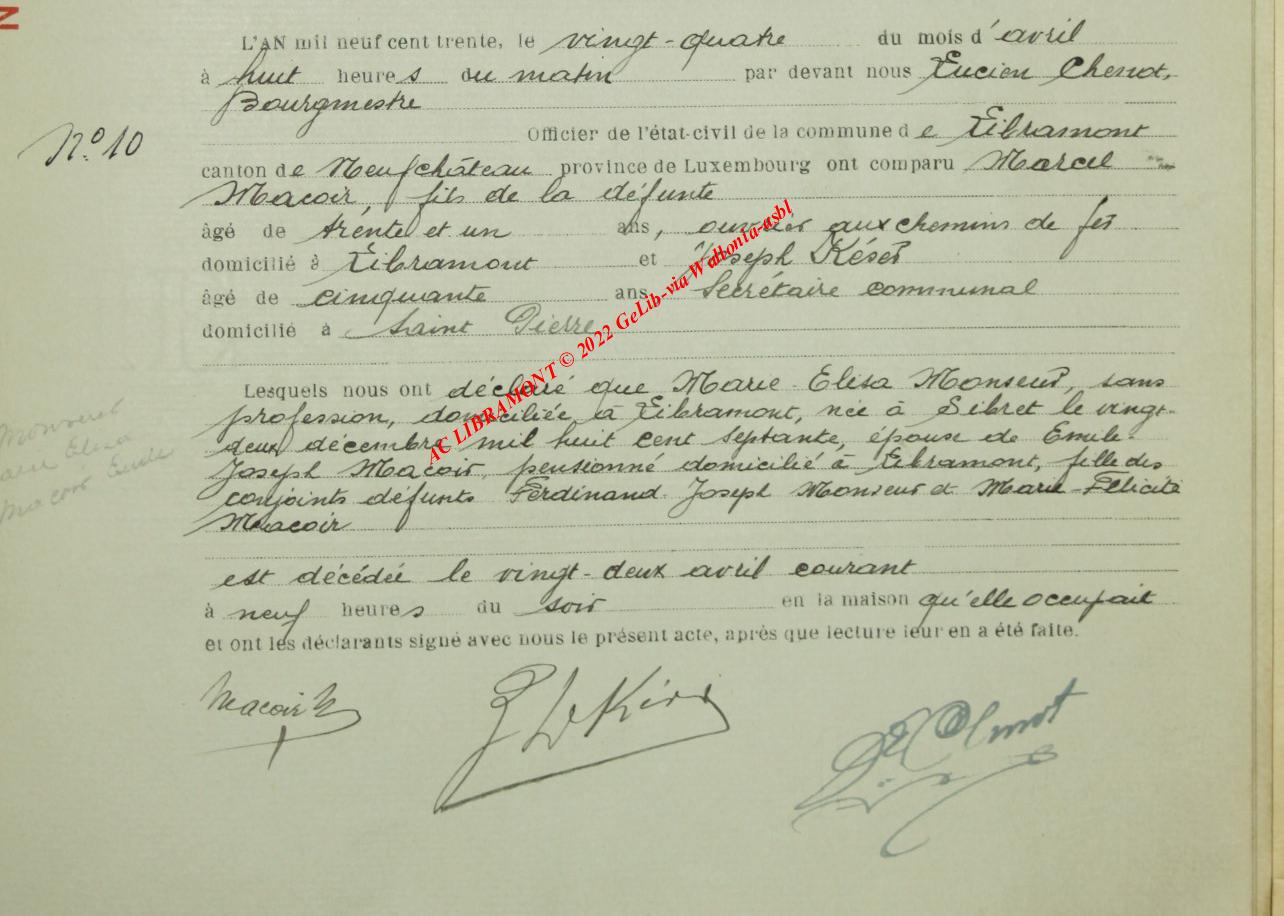 N
L'AN mil neuf cent trente, le vingt-quatre du mois d'avril
à huit heures du matin par devant nous Lucien Chenot,
Bourgmestre
N° 10
Officier de l'état-civil de la commune de Libramont
canton de Neufchâteau province de Luxembourg ont comparu Marcel
Macoir, fils de la défunte
âgé de trente et un ans, ouvrier aux chemins de fer
domicilié à Libramont et Joseph
âgé de cinquante ans Secrétaire communal
domicilié à Saint Pierre
Lesquels nous ont déclaré que Marie-Elisa Monseur, sans
profession, domiciliée à Libramont, née à Sibret le vingt-
deux décembre mil huit cent septante, épouse de Emile-
Joseph Macoir, pensionné domicilié à Libramont, fille des
conjoints défunts Ferdinand-Joseph Monseur et Marie-Félicité
Macoir
est décédée le vingt-deux avril courant
à neuf heures du soir en la maison qu'elle occupait
et ont les déclarants signé avec nous le présent acte, après que lecture leur en a été faite.
Macoir M
L Chenot
AC LIBRAMONT © 2022 GeLib-via Wallonia-asbl